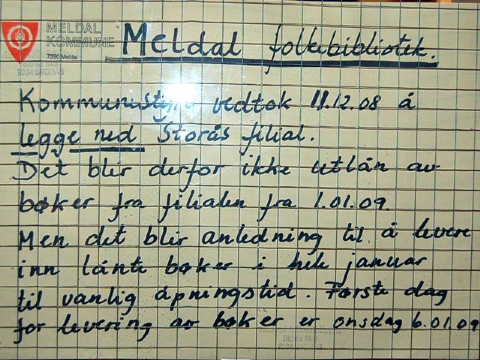 MELDAL
KOMMUNE
7336 Meldal
Meldal folkebibliotek.
Kommunestyret vedtok 11.12.08 å
legge ned Storås filial.
Det blir derfor ikke utlån av
bøker fra filialen fra 1.01.09.
Men det blir anledning til å levere
inn lånte bøker i hele januar
til vanlig åpningstid. Første dag
for levering av bøker er onsdag 6.01.09